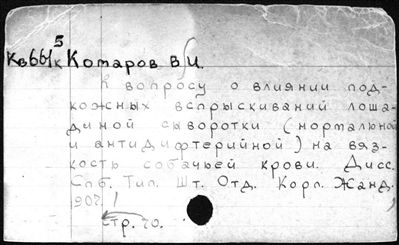 5
Кв661к Комаров В.И.
К вопросу о влиянии под-
кожных вспрыскиваний лоша-
диной сыворотки (нормальной
и антидифтерийной) на вяз-
кость собачьей крови. Дисс.
Спб. Тип. Шт. Отд. Корп. Жанд.
907.
стр. 70.